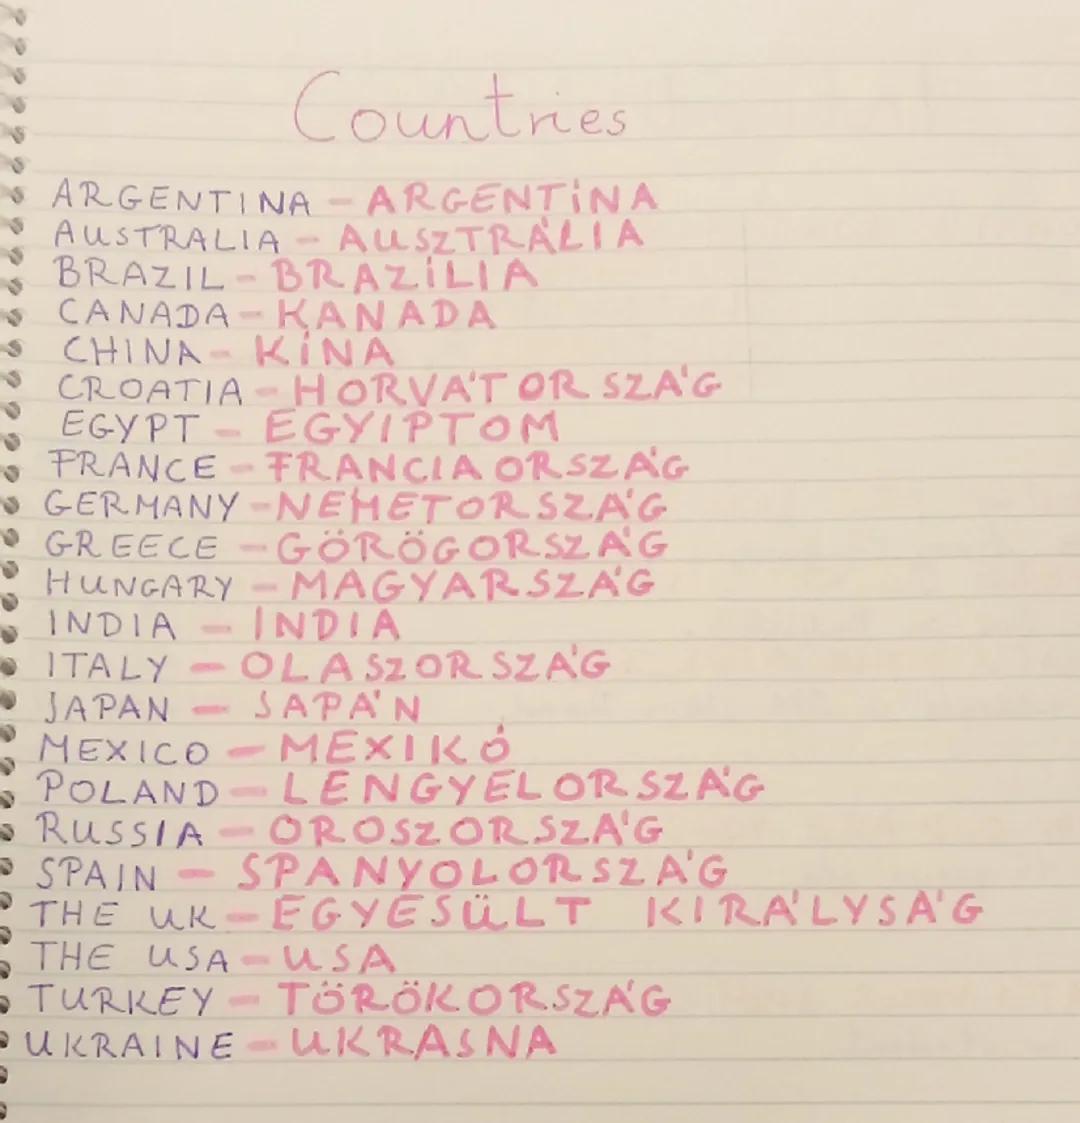 Countries
ARGENTINA - ARGENTÍNA
AUSTRALIA - AUSZTRÁLIA
BRAZIL - BRAZÍLIA
CANADA - KANADA
CHINA - KÍNA
CROATIA - HORVÁTORSZÁG
EGYPT - EGYIPTOM
FRANCE - FRANCIAORSZÁG
GERMANY - NÉMETORSZÁG
GREECE - GÖRÖGORSZÁG
HUNGARY - MAGYARSZÁG
INDIA - INDIA
ITALY - OLASZORSZÁG
JAPAN - JAPÁN
MEXICO - MEXIKÓ
POLAND - LENGYELORSZÁG
RUSSIA - OROSZORSZÁG
SPAIN - SPANYOLORSZÁG
THE UK - EGYESÜLT KIRÁLYSÁG
THE USA - USA
TURKEY - TÖRÖKORSZÁG
UKRAINE - UKRAJNA